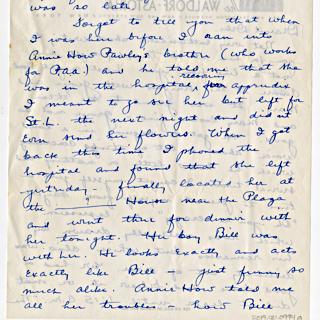 was so late.
Forgot to tell you that when
I was here before I ran into
Annie How Pawley's brother (who works
for P.A.A.) and he told me that she
was in the hospital, recovering appendix
I meant to go see her but left for
St. L. the next night and didn't
even send her flowers. When I got
back this time I phoned the
hospital and found that she left
yesterday - finally located her at
the ? House near the Plaza
and went there for dinner with
her tonight. Her boy Bill was
with her. He looks exactly and acts
exactly like Bill - just funny so
much alike. Annie How told me
all her troubles - how Bill